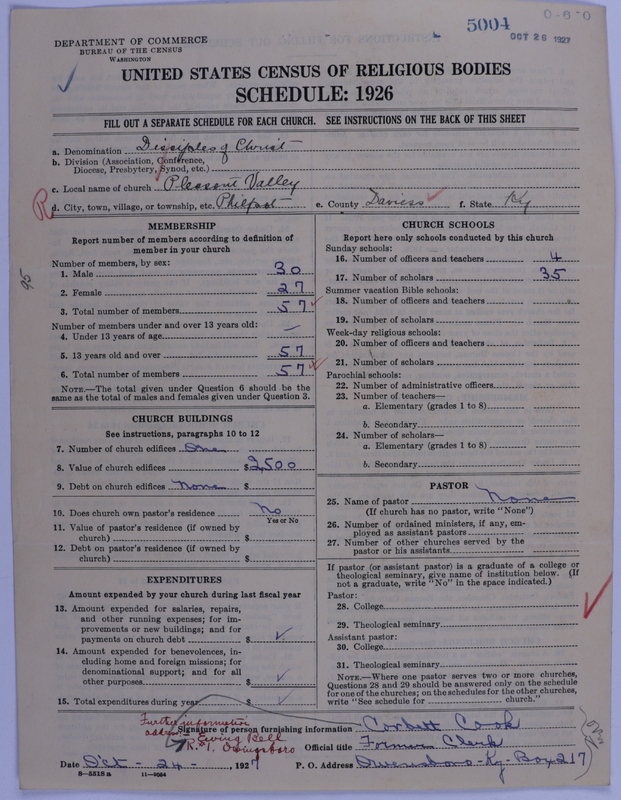 5004
0-6-0
OCT 26 1927
DEPARTMENT OF COMMERCE
BUREAU OF THE CENSUS
WASHINGTON
UNITED STATES CENSUS OF RELIGIOUS BODIES
SCHEDULE: 1926
FILL OUT A SEPARATE SCHEDULE FOR EACH CHURCH. SEE INSTRUCTIONS ON THE BACK OF THIS SHEET
a. Denomination Disciples of Christ
b. Division (Association, Conference,
Diocese, Presbytery, Synod, etc.)
c. Local name of church Pleasant Valley
R d. City, town, village, or township, etc. Philpot e. County Daviess f. State Ky
95
MEMBERSHIP
Report number of members according to definition of
member in your church
Number of members, by sex:
1. Male 30
2. Female 27
3. Total number of members 57
Number of members under and over 13 years old:
4. Under 13 years of age —
5. 13 years old and over 57
6. Total number of members 57
NOTE.—The total given under Question 6 should be the
same as the total of males and females given under Question 3.
CHURCH BUILDINGS
See instructions, paragraphs 10 to 12
7. Number of church edifices One
8. Value of church edifices $2500
9. Debt on church edifices None $
10. Does church own pastor's residence No
Yes or No
11. Value of pastor's residence (if owned by
church) $
12. Debt on pastor's residence (if owned by
church) $
EXPENDITURES
Amount expended by your church during last fiscal year
13. Amount expended for salaries, repairs,
and other running expenses; for im-
provements or new buildings; and for
payments on church debt $
14. Amount expended for benevolences, in-
cluding home and foreign missions; for
denominational support; and for all
other purposes $
15. Total expenditures during year $
CHURCH SCHOOLS
Report here only schools conducted by this church
Sunday schools:
16. Number of officers and teachers 4
17. Number of scholars 35
Summer vacation Bible schools:
18. Number of officers and teachers
19. Number of scholars
Week-day religious schools:
20. Number of officers and teachers
21. Number of scholars
Parochial schools:
22. Number of administrative officers
23. Number of teachers—
a. Elementary (grades 1 to 8)
b. Secondary
24. Number of scholars—
a. Elementary (grades 1 to 8)
b. Secondary
PASTOR
25. Name of pastor None
(If church has no pastor, write "None")
26. Number of ordained ministers, if any, em-
ployed as assistant pastors
27. Number of other churches served by the
pastor or his assistants
If pastor (or assistant pastor) is a graduate of a college or
theological seminary, give name of institution below. (If
not a graduate, write "No" in the space indicated.)
Pastor:
28. College
29. Theological seminary
Assistant pastor:
30. College
31. Theological seminary
NOTE.—Where one pastor serves two or more churches,
Questions 28 and 29 should be answered only on the schedule
for one of the churches; on the schedules for the other churches,
write "See schedule for church."
Further information
address
Ewing Bell
R.#1. Owensboro
Signature of person furnishing information Corbett Cook
Official title Former Clerk
Date Oct - 24 -, 1927 P. O. Address Owensboro-Ky-Box 217
8—5518 a 11—9034